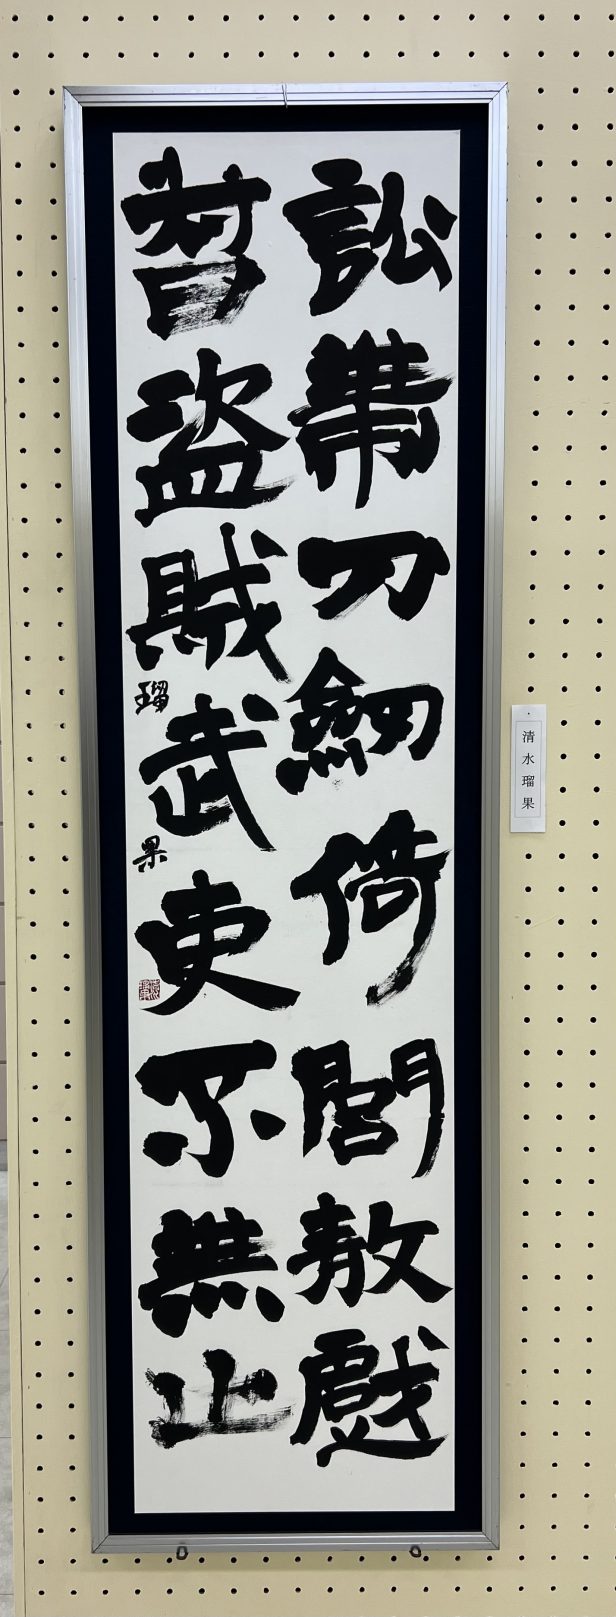 訟帶刀劒倚閭敖戲
督盜賊武吏不無止
瑠果
清水瑠果